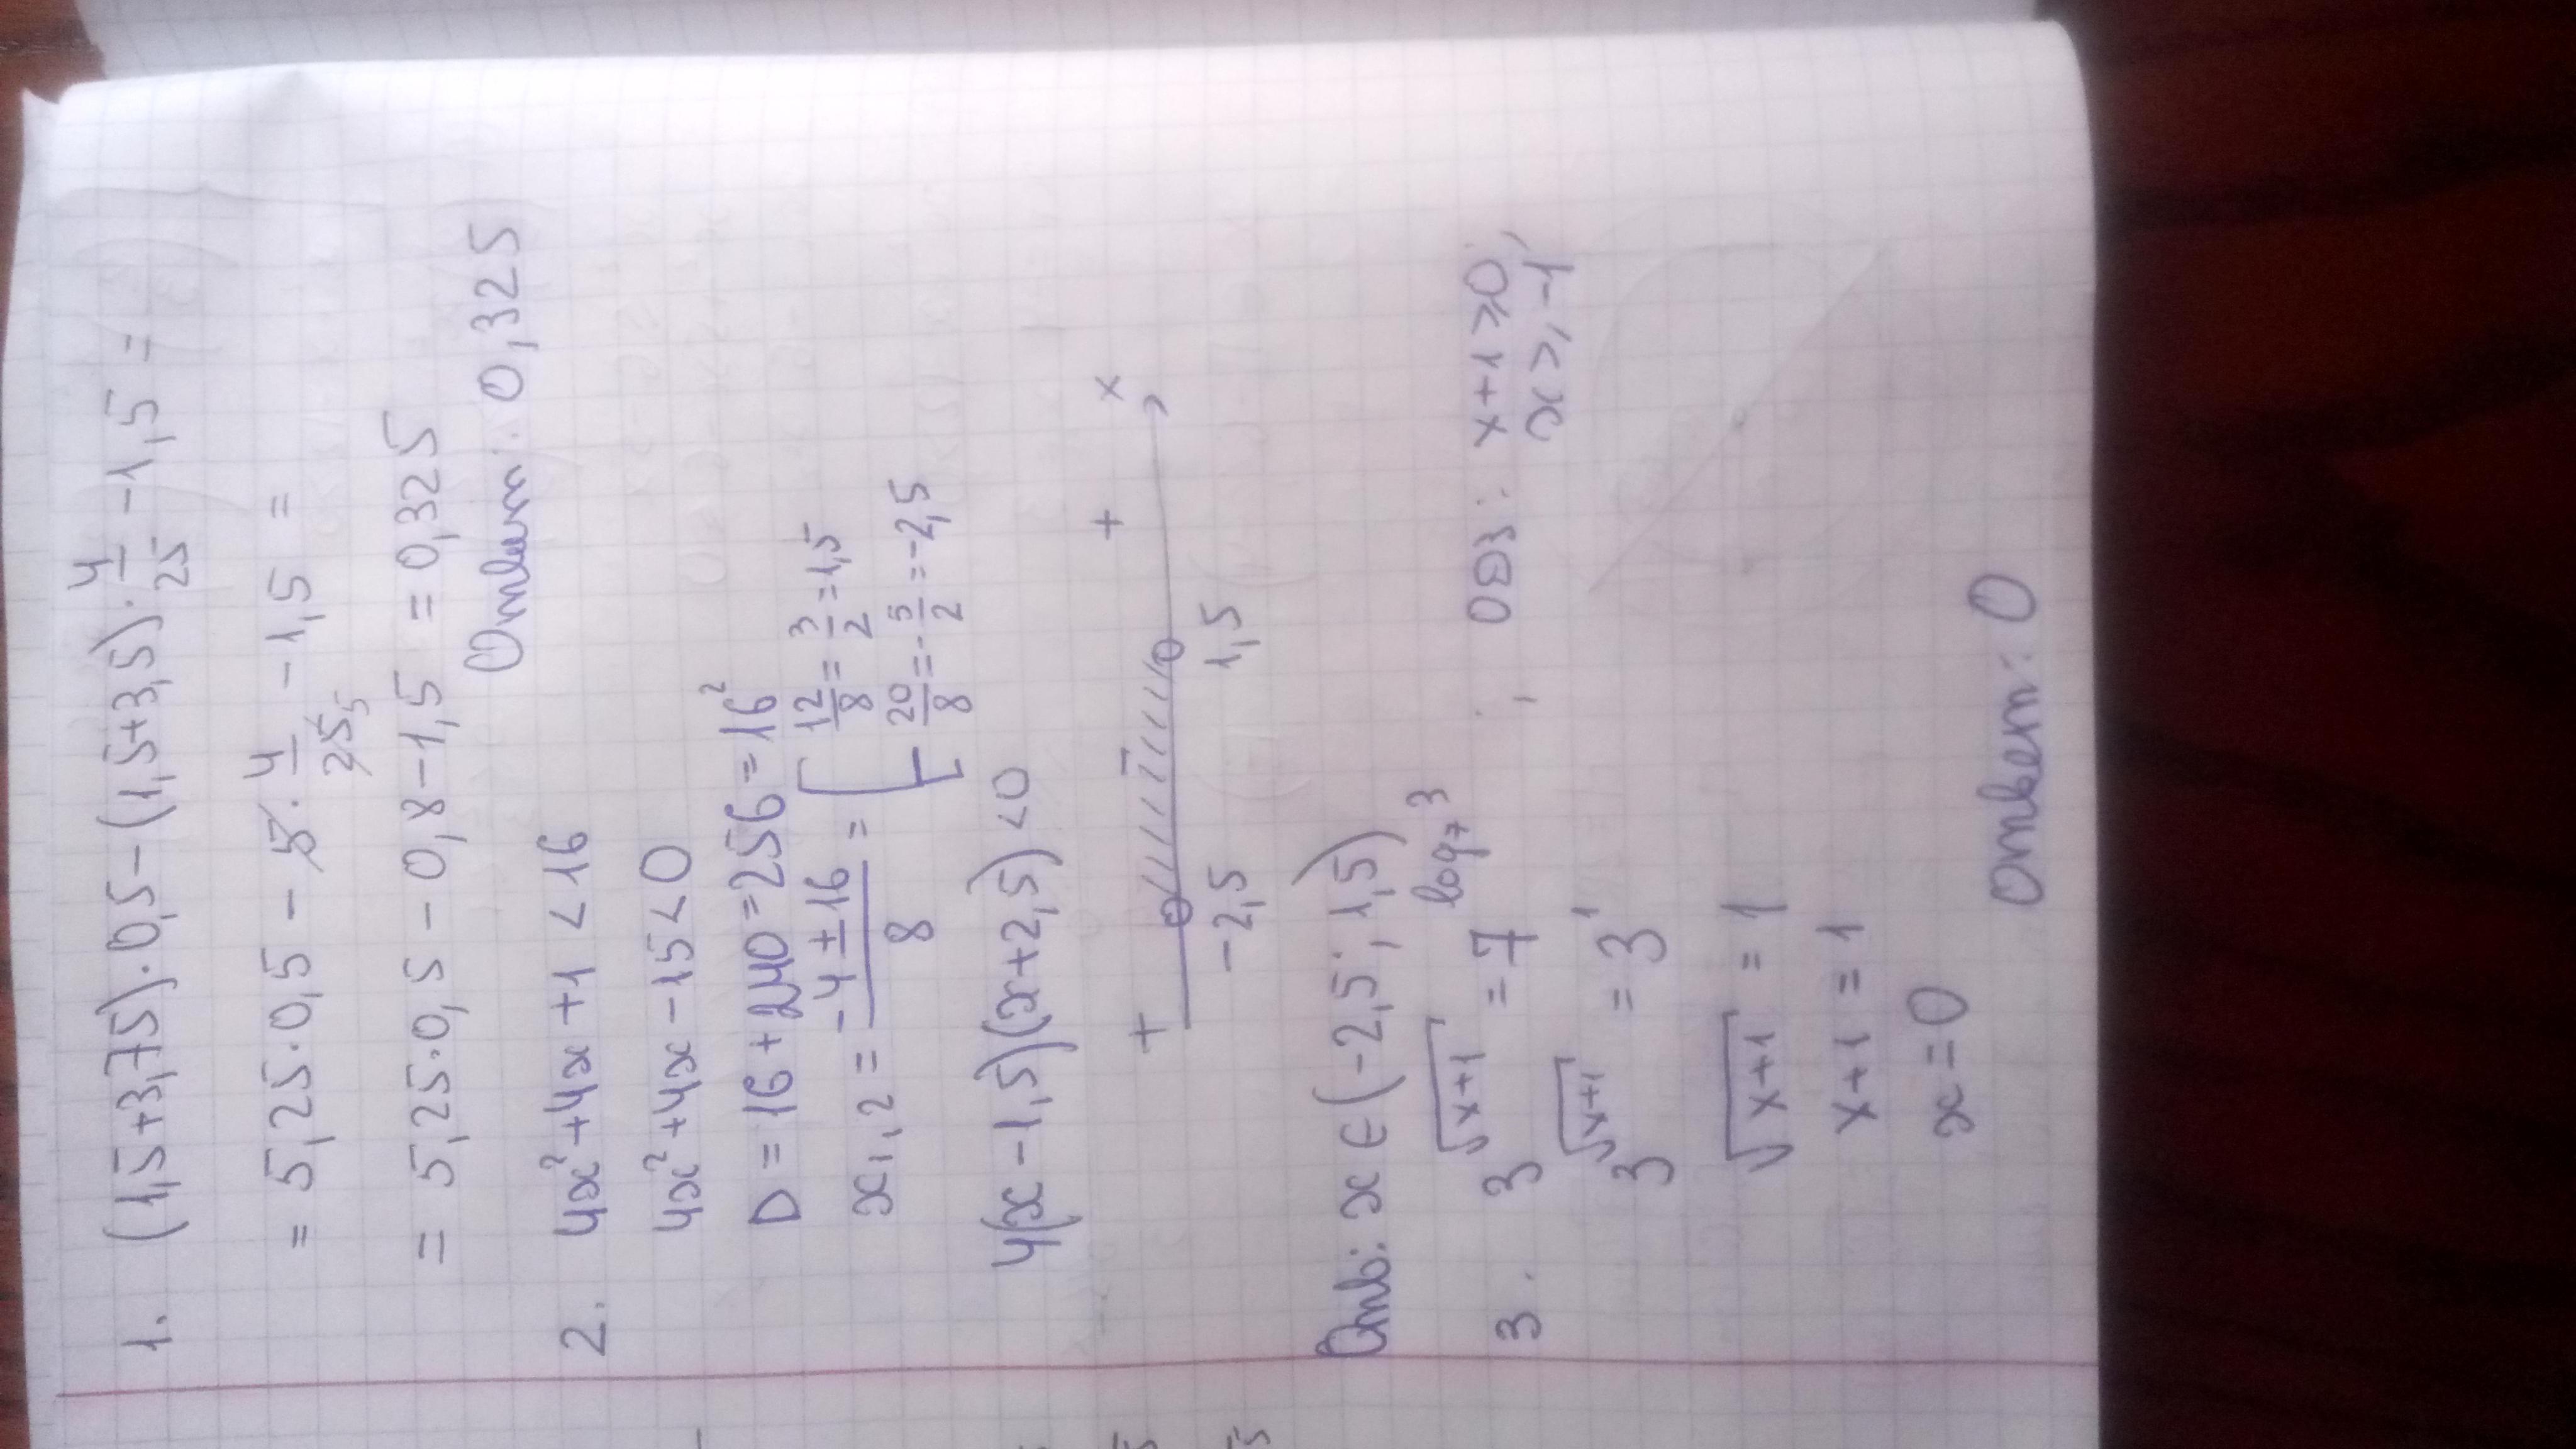 1. (1,5+3,75)·0,5-(1,5+3,5)·4/25-1,5=
=5,25·0,5-5·4/25 5-1,5=
=5,25·0,5-0,8-1,5=0,325
Ответ: 0,325
2. 4x²+4x+1<16
4x²+4x-15<0
D=16+240=256=16²
x1,2=(-4±16)/8=[12/8=3/2=1,5
-20/8=-5/2=-2,5
4(x-1,5)(x+2,5)<0
+ - + x
-2,5 1,5
Отв: x∈(-2,5; 1,5)
3. 3^√(x+1)=7^log₇3; ОДЗ: x+1≥0;
x≥-1
3^√(x+1)=3¹
√(x+1)=1
x+1=1
x=0
Ответ: 0